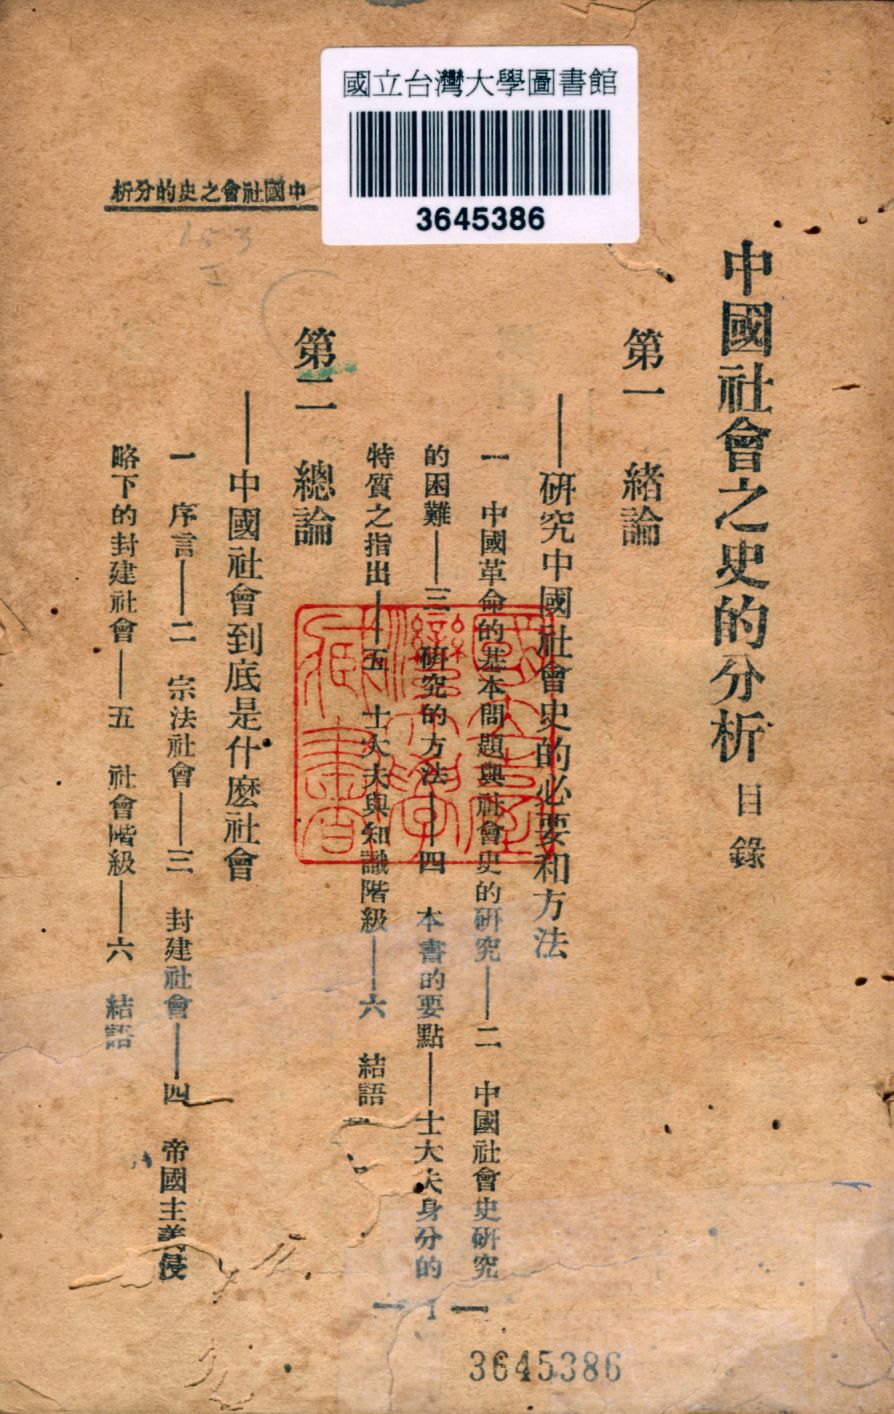 國立台灣大學圖書館
3645386
中國社會之史的分析
153
I
中國社會之史的分析 目錄
第一 緒論
——研究中國社會史的必要和方法
一 中國革命的基本問題與社會史的研究——二 中國社會史研究
的困難——三 研究的方法——四 本書的要點——士大夫身分的
特質之指出——五 士大夫與知識階級——六 結語
第二 總論
——中國社會到底是什麽社會
一 序言——二 宗法社會——三 封建社會——四 帝國主義侵
略下的封建社會——五 社會階級——六 結語
國立臺灣大學藏書
— 1 —
3645386